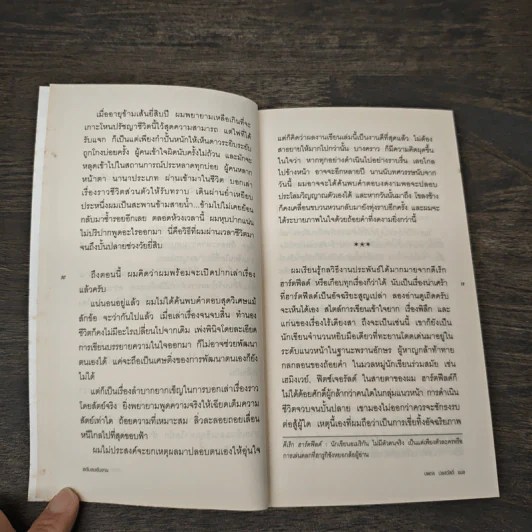 เมื่ออายุข้ามเส้นยี่สิบปี ผมพยายามเหลือเกินที่จะ
เกาะไหนปรัชญาชีวิตนี้ไว้สุดความสามารถ แต่ไพ่ที่ได้
รับแจก ก็เป็นแต่เพียงกำปั้นหนักให้เห็นดาวระยิบระยับ
ถูกโกงบ่อยครั้ง ผู้คนเข้าใจผิดนับครั้งไม่ถ้วน และมักจะ
หลุดเข้าไปในสถานการณ์ประหลาดทุกบ่อย ผู้คนหลาก
หน้าตา นานาประเภท ผ่านเข้ามาในชีวิต บอกเล่า
เรื่องราวชีวิตส่วนตัวให้รับทราบ เดินผ่านย่ำเหยียบ
ประหนึ่งผมเป็นสะพานข้ามสายน้ำ...ข้ามไปไม่เคยย้อน
กลับมาซ้ำรอยอีกเลย ตลอดห้วงเวลานี้ ผมหุบปากแน่น
ไม่ปริปากพูดอะไรออกมา นี่คือวิธีที่ผมผ่านเวลาชีวิตมา
จนถึงบั้นปลายช่วงวัยยี่สิบ
ถึงตอนนี้ ผมคิดว่าผมพร้อมจะเปิดปากเล่าเรื่อง
แล้วครับ
แน่นอนอยู่แล้ว ผมไม่ได้ค้นพบคำตอบสุดวิเศษแม้
สักข้อ จะว่ากันไปแล้ว เมื่อเล่าเรื่องจนจบสิ้น ทำนอง
ชีวิตก็คงไม่มีอะไรเปลี่ยนไปจากเดิม เพ่งพินิจโดยละเอียด
การเขียนบรรยายความในใจออกมา ก็ไม่อาจช่วยพัฒนา
ตนเองได้ แค่จะถือเป็นเศษติ่งของการพัฒนาตนเองก็ยัง
ไม่ได้
แต่ก็เป็นเรื่องลำบากยากเข็ญในการบอกเล่าเรื่องราว
โดยสัตย์จริง ยิ่งพยายามพูดความจริงให้เฉียดเติมความ
สัตย์เท่าใด ถ้อยความที่เหมาะสม ลิ่วละลอยถอยเลื่อน
หนีไกลไปที่สุดขอบฟ้า
ผมไม่ประสงค์จะยกเหตุผลมาปลอบตนเองให้อุ่นใจ
สดับลมขับขาน
แต่ก็คิดว่าผลงานเขียนเล่มนี้เป็นงานดีที่สุดแล้ว ไม่ต้อง
สาธยายให้มากไปกว่านั้น บางคราว ก็มีความคิดผุดขึ้น
ในใจว่า หากทุกอย่างดำเนินไปอย่างราบรื่น เลยไกล
ไปข้างหน้า อาจจะอีกหลายปี นานนับทศวรรษนับจาก
วันนี้ ผมอาจจะได้ค้นพบคำตอบงดงามพอจะปลอบ
ประโลมวิญญาณตัวเองได้ และหากวันนั้นมาถึง โขลงช้าง
ก็คงเคลื่อนขบวนหวนกลับมายังทุ่งราบอีกครั้ง และผมจะ
ได้ระบายภาพในใจด้วยถ้อยคำที่งดงามยิ่งกว่านี้
***
ผมเรียนรู้กลวิธีงานประพันธ์ได้มากมายจากดีเร็ก
ฮาร์ตฟีลด์ หรือเกือบทุกเรื่องก็ว่าได้ นับเป็นเรื่องน่าเศร้า
ที่ฮาร์ตฟีลด์เป็นอัจฉริยะสูญเปล่า ลองอ่านดูเถิดครับ
จะเห็นได้เอง สไตล์การเขียนเข้าใจยาก เรื่องพิลึก และ
แก่นของเรื่องไร้เดียงสา ถึงจะเป็นเช่นนี้ เขาก็ยังเป็น
นักเขียนจำนวนหยิบมือเดียวที่ทะยานโดดเด่นมาอยู่ใน
ระดับแนวหน้าในฐานะพรานอักษร ผู้หาญกล้าท้าทาย
กลกลอนของถ้อยคำ ในมวลหมู่นักเขียนร่วมสมัย เช่น
เฮมิงเวย์, ฟิตซ์เจอรัลด์ ในสายตาของผม ฮาร์ตฟีลด์ก็
ไม่ได้ด้อยศักดิ์ผู้กล้ากว่าคนใดในกลุ่มแนวหน้า การดำเนิน
ชีวิตจวบจนบั้นปลาย เขามองไม่ออกว่าควรจะชักธงรบ
ต่อสู้ผู้ใด เหตุนี้เองที่ผมถือว่าเป็นการเชี่ยทิ้งอัจฉริยภาพ
ดีเร็ก ฮาร์ตฟีลด์ : นักเขียนอเมริกัน ไม่มีตัวตนจริง เป็นแค่เพียงตัวละครหรือ
การเล่นตลกที่ฮารูกิซังหยอกล้อผู้อ่าน
นพดล เวชสวัสดิ์ แปล